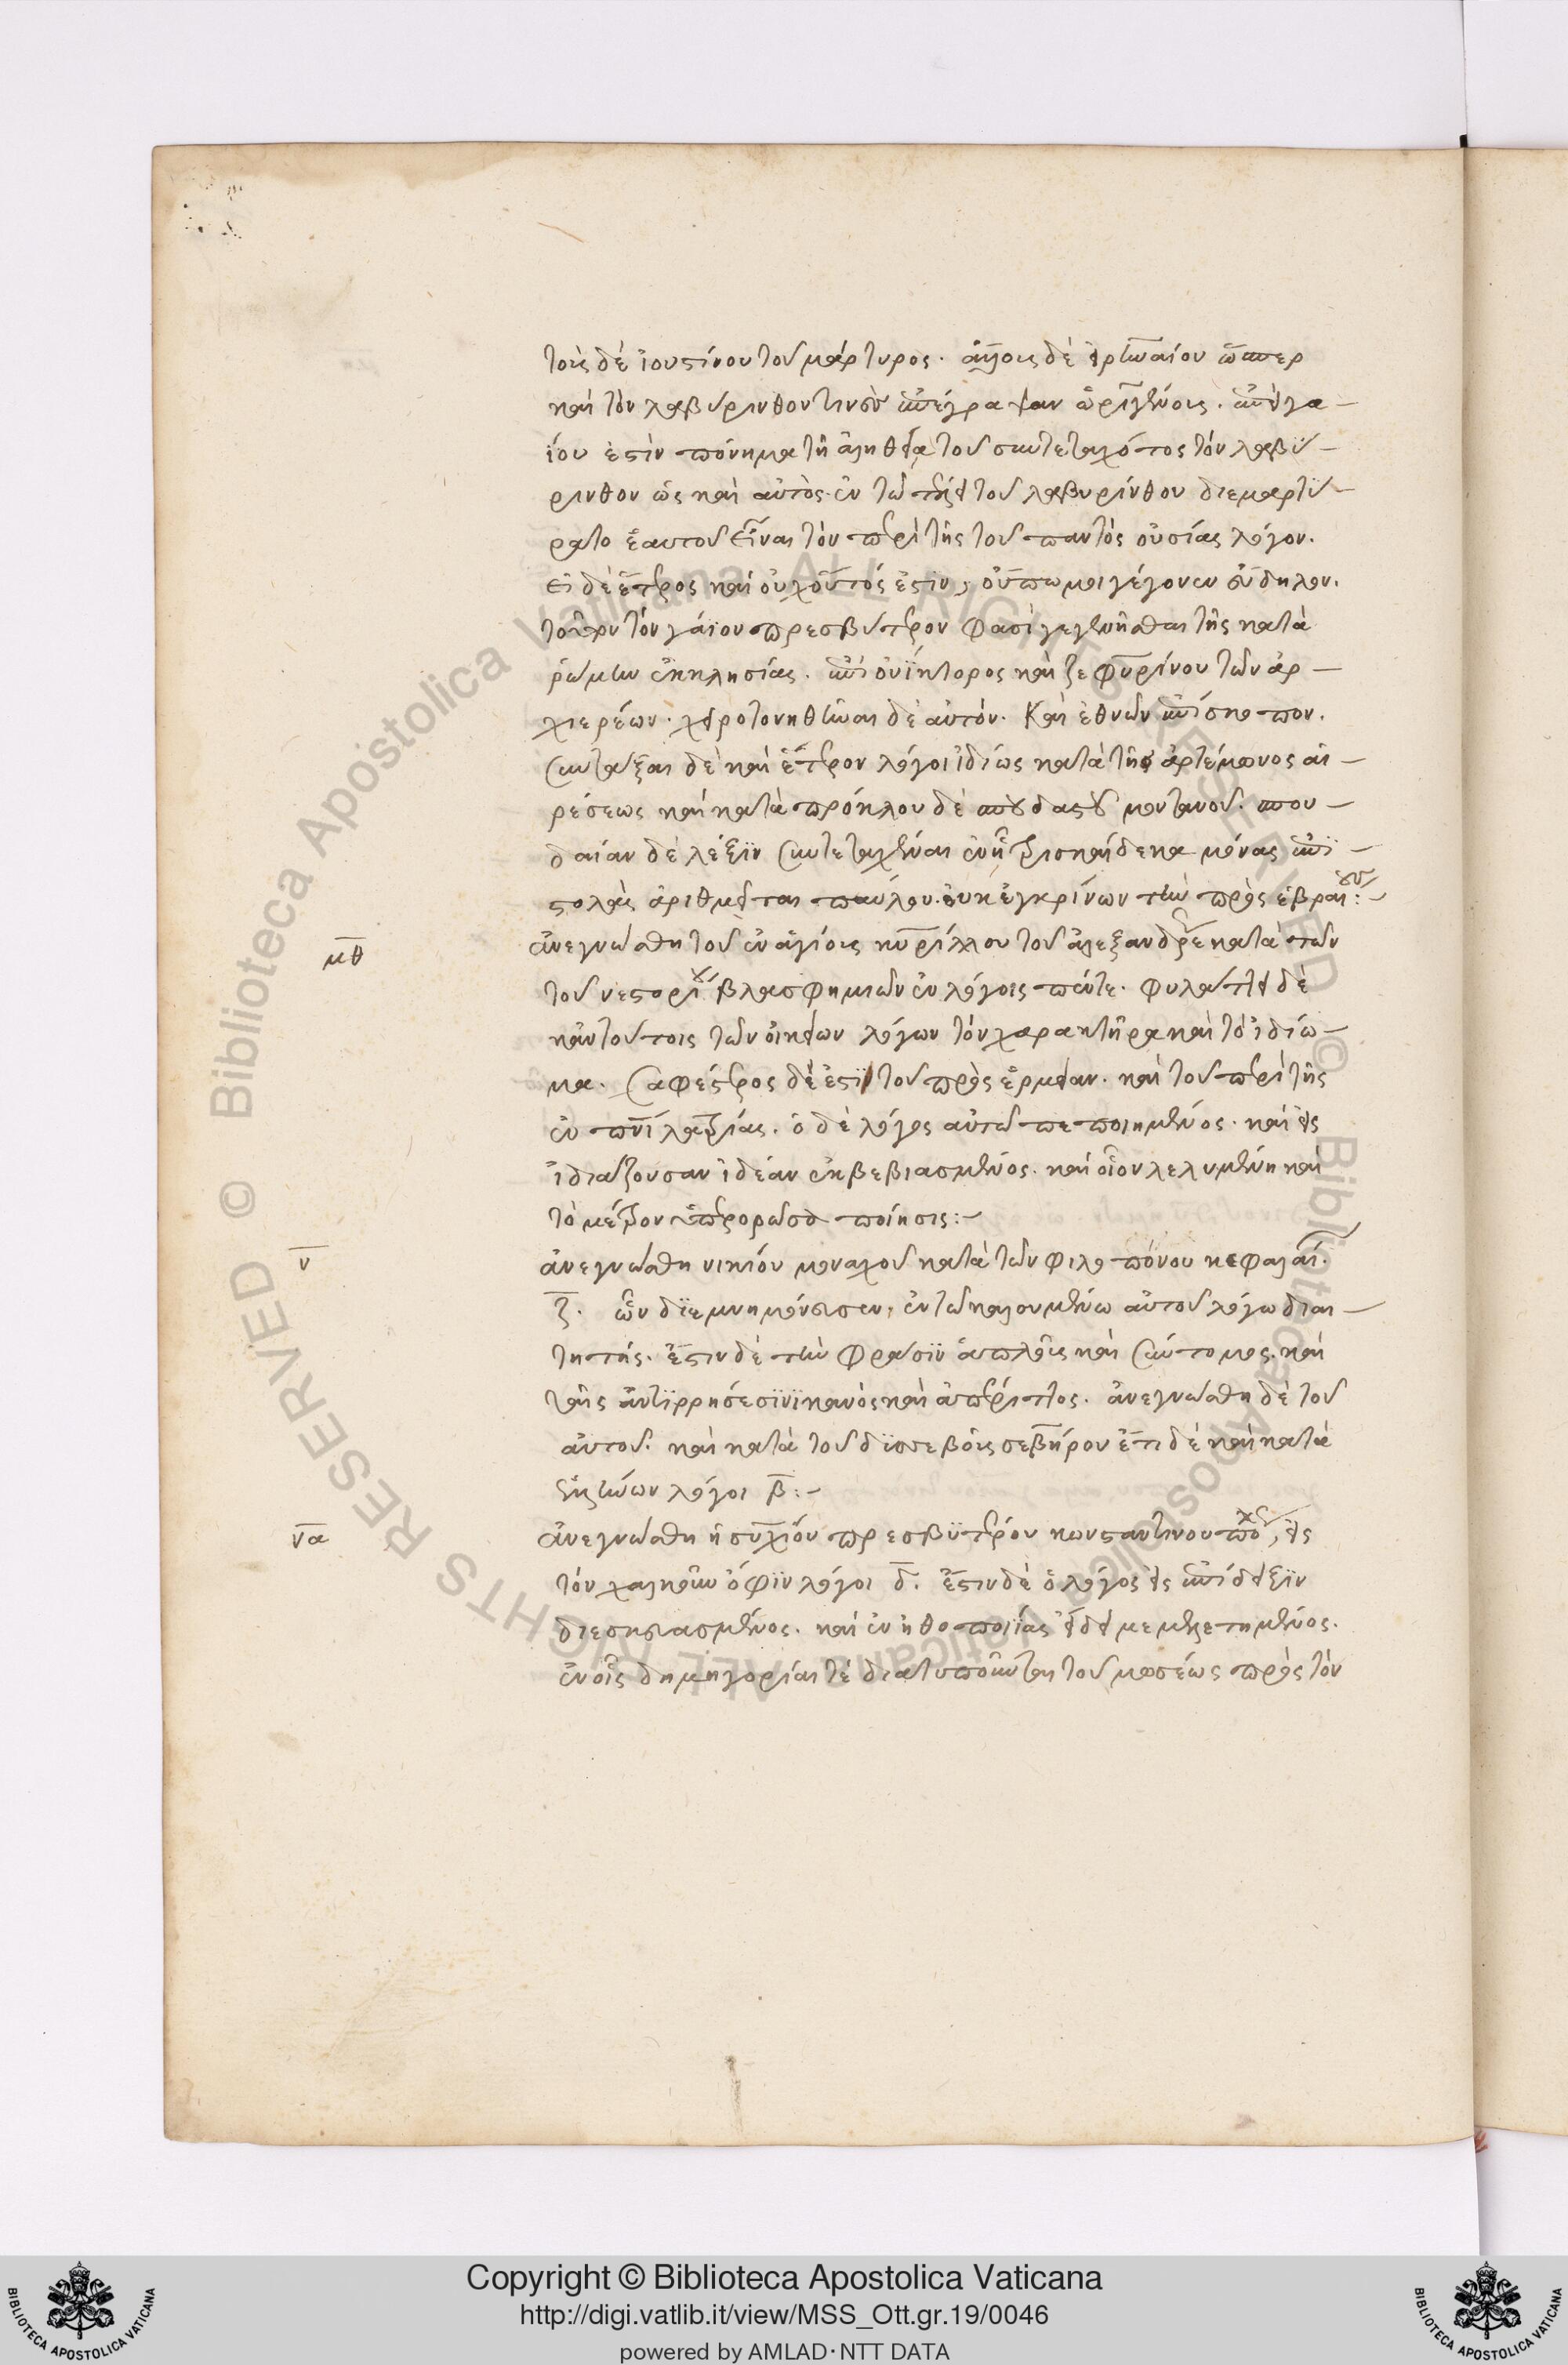 τοὶς δὲ ἰουστίνου τοῦ μάρτυρος. ἄλλοις δὲ εἰρηναίου ὥσπερ
καὶ τὸν λαβύρινθον τινὲς ἐπέγραψαν ὠριγένους. ἐπεὶ γα-
ίου ἐστὶν πόνημα τῇ ἀληθεία τοῦ συντεταχότος τὸν λαβύ-
ρινθον ὡς καὶ αὐτὸς ἐν τῷ τέλει τοῦ λαβυρίνθου διεμαρτύ-
ρατο ἑαυτοῦ εἶναι τὸν περὶ τῆς τοῦ παντὸς οὐσίας λόγον.
εἰ δὲ ἕτερος καὶ οὐχ οὗτός ἐστιν, οὔπω μοι γέγονεν εὔδηλον.
τοῦτον τὸν γάϊον πρεσβύτερον φασὶ γεγενῆσθαι τῆς κατὰ
ῥώμην ἐκκλησίας. ἐπὶ οὐΐκτορος καὶ ζεφυρίνου τῶν ἀρ-
χιερέων. χειροτονηθῆναι δὲ αὐτόν. Καὶ ἐθνῶν ἐπίσκοπον.
Συντάξαι δὲ καὶ ἕτερον λόγοι ἰδίως κατὰ τῆς ἀρτέμωνος αἱ-
ρέσεως καὶ κατὰ πρόκλου δὲ σπουδαστοῦ μοντανοῦ. σπου-
δαίαν δὲ λέξϊν συντεταχέναι ἐν ᾗ τρισκαίδεκα μόνας ἐπϊ-
στολὰς ἀριθμεῖται παύλου. οὐκ ἐγκρίνων τὴν πρὸς ἑβραίους:-
μθ ἀνεγνώσθη τοῦ ἐν ἁγίοις κυρίλλου τοῦ ἀλεξανδρε κατὰ τῶν
τοῦ νεστορίου βλασφημιῶν ἐν λόγοις πέντε. φυλάττει δὲ
κἀν τούτοις τῶν οἰκείων λόγων τὸν χαρακτῆρα καὶ τὸ ἰδίω-
μα. Σαφέστερος δὲ ἐστϊ τοῦ πρὸς ἑρμείαν. καὶ τοῦ περὶ τῆς
ἐν πνὶ λατρίας. ὁ δὲ λόγος αὐτῶ πεποιημένος. καὶ εἰς
ἰδιάζουσαν ἰδέαν ἐκβεβιασμένος. καὶ οἷον λελυμένη καὶ
τὸ μέτρον ὑπερορῶσα ποίησις:-
ν ἀνεγνώσθη νικίου μοναχοῦ κατὰ τῶν φιλοπόνου κεφαλαί.
ζ. ὧν δϊεμνημόνευσεν, ἐν τῶ καλουμένω αὐτοῦ λόγω διαι-
τητής. ἔστιν δὲ τὴν φράσϊν ἁπλοῦς καὶ σύντομος. καὶ
ταῖς ἀντϊρρήσεσϊν ϊκανὸς καὶ ἀπέριττος. ἀνεγνώσθη δὲ τοῦ
αὐτοῦ. καὶ κατὰ τοῦ δϊσσεβοῦς σεβήρου ἔτι δὲ καὶ κατὰ
ἑλλήνων λόγοι β:-
να ἀνεγνώσθη ἡσυχίου πρεσβϋτέρου κωνσταντινουπό, εἰς
τὸν χαλκοῦν ὄφϊν λόγοι δ. ἔστιν δὲ ὁ λόγος εἰς ἐπίδειξϊν
διεσκευασμένος. καὶ ἐν ἠθοποιΐας εἴδει μεμελετημένος.
ἐν οἷς δημηγορίαι τὲ διατυποῦνται τοῦ μωσέως πρὸς τὸν
Copyright © Biblioteca Apostolica Vaticana
http://digi.vatlib.it/view/MSS_Ott.gr.19/0046
powered by AMLAD·NTT DATA